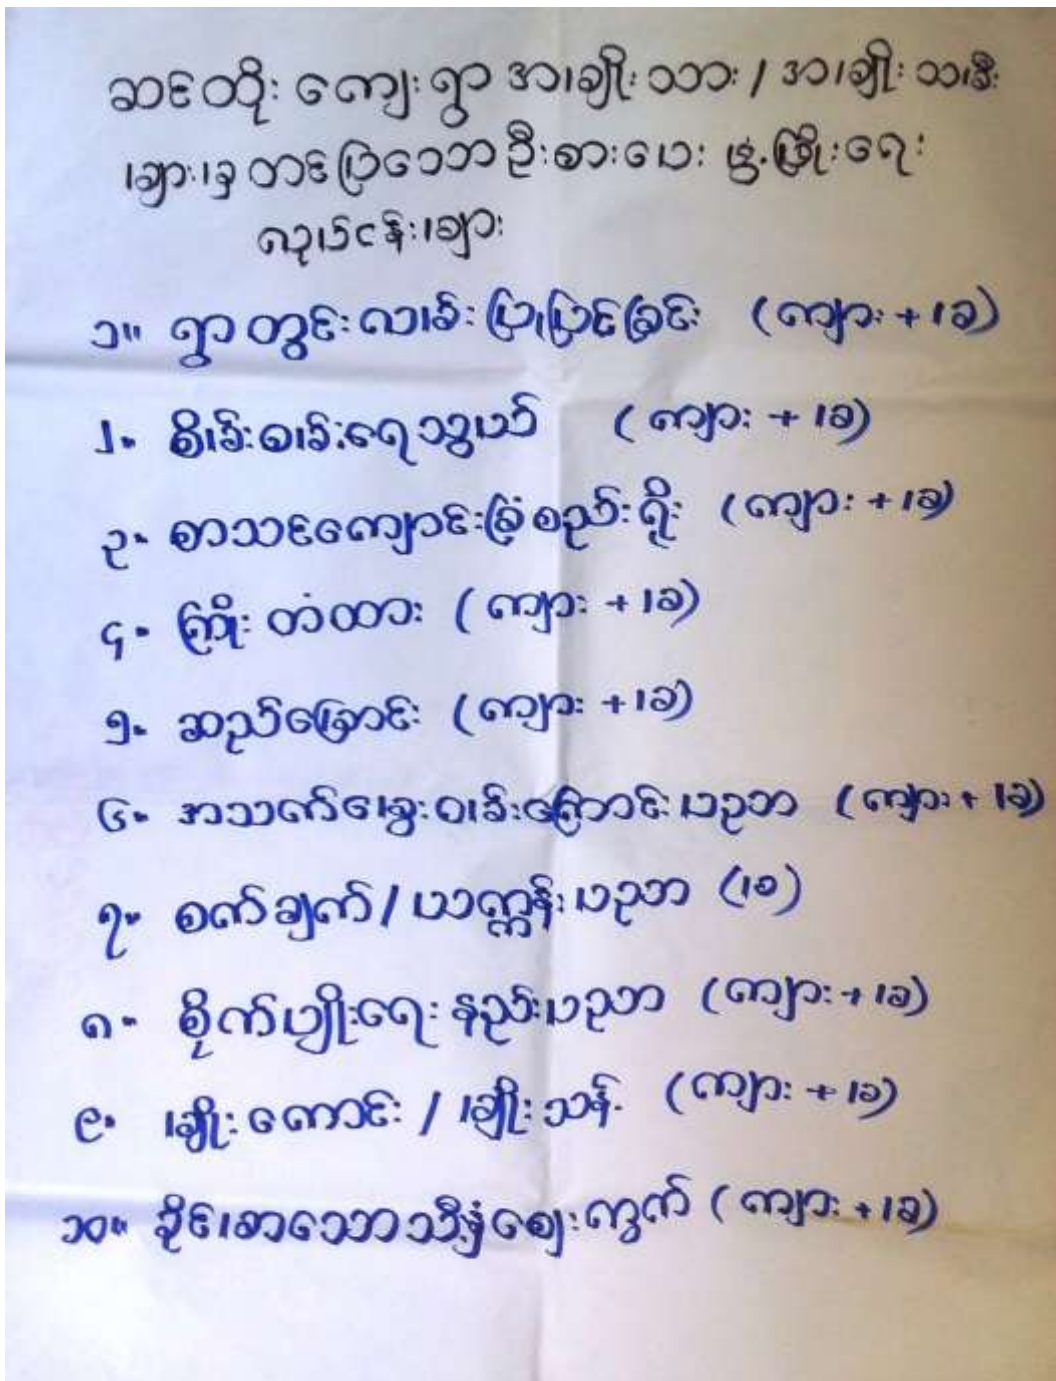 ဆင်တိုး ကျေးရွာ အမျိုးသား / အမျိုးသမီး
များမှ တင်ပြသော ဦးစားပေး ဖွံ့ဖြိုးရေး
လုပ်ငန်းများ
၁။ ရွာတွင်းလမ်း ပြုပြင်ခြင်း (ကျား + မ)
၂။ စိမ်းစမ်းရေသွယ် (ကျား + မ)
၃။ စာသင်ကျောင်းခြံစည်းရိုး (ကျား + မ)
၄။ ကြိုးတံတား (ကျား + မ)
၅။ ဆည်မြောင်း (ကျား + မ)
၆။ အသက်မွေးဝမ်းကြောင်းပညာ (ကျား + မ)
၇။ စက်ချုပ် / ယက္ကန်းပညာ (မ)
၈။ စိုက်ပျိုးရေး နည်းပညာ (ကျား + မ)
၉။ မျိုးကောင်း / မျိုးသန့် (ကျား + မ)
၁၀။ ခိုင်မာသောသီးနှံဈေးကွက် (ကျား + မ)